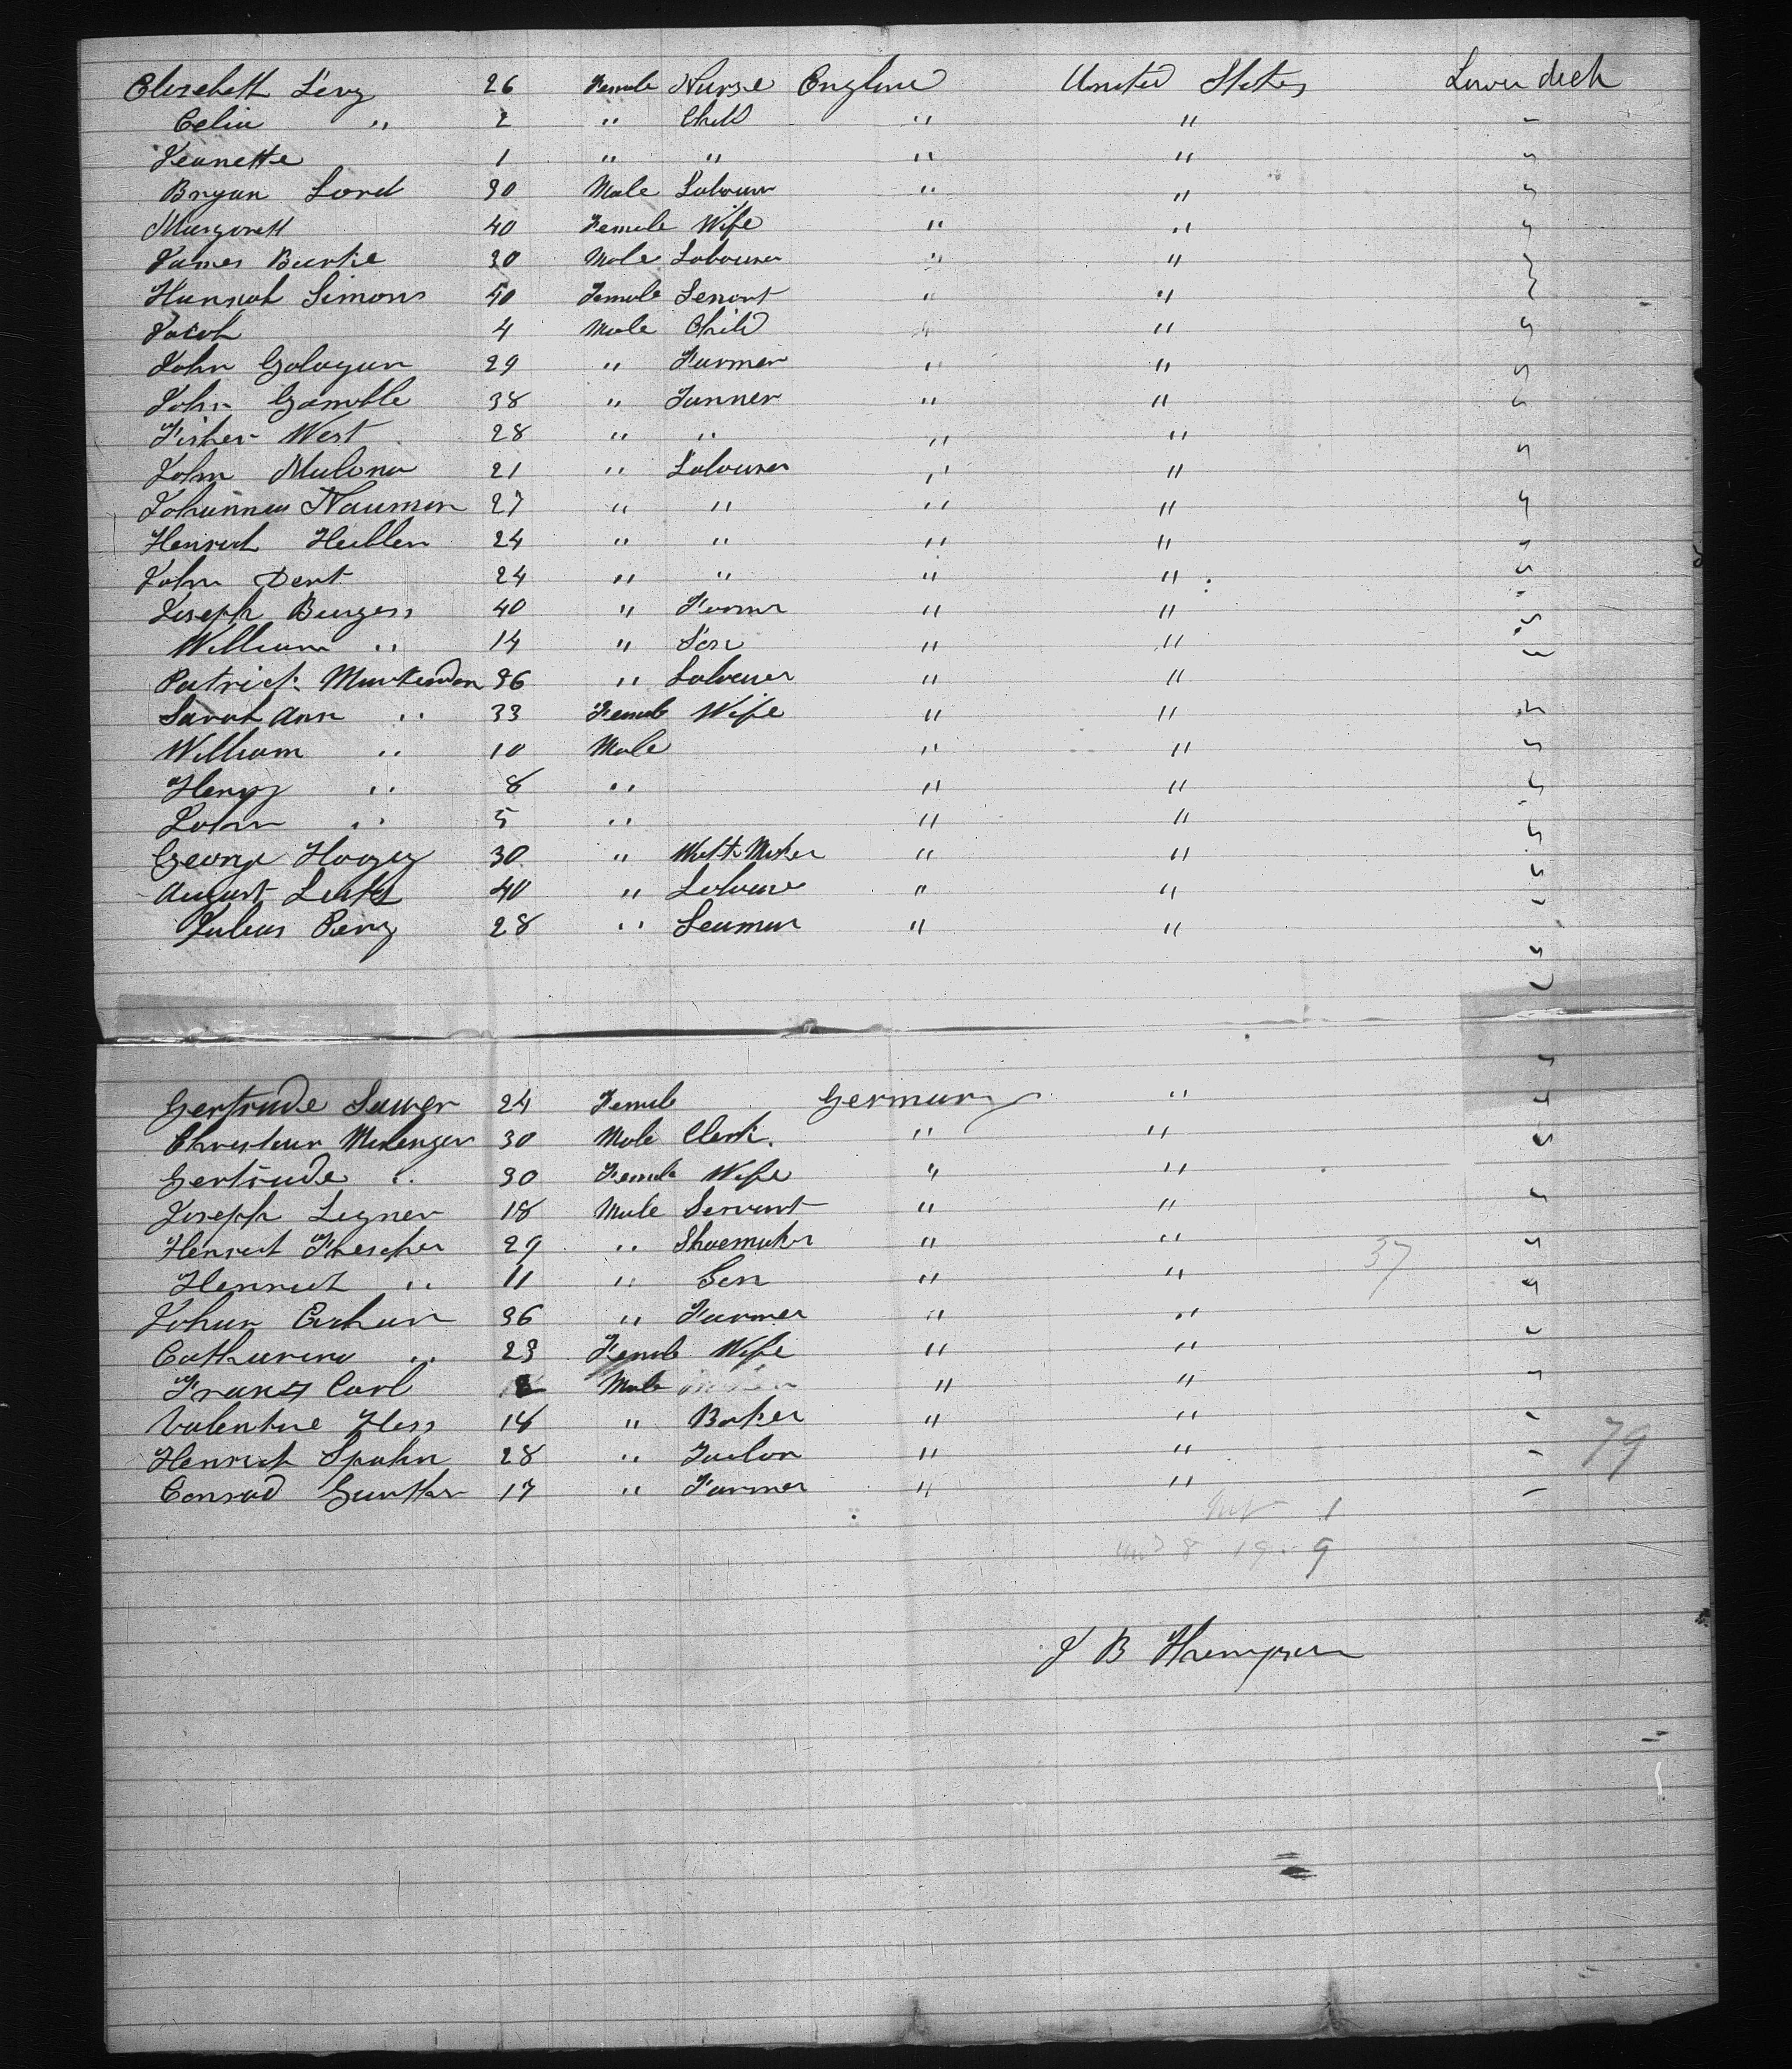 Elisabeth Levy 26 Female Nurse England United States Lower deck
Celia " 2 " Child " "
Jeanette 1 " " " "
Bryan Lord 30 Male Labourer " "
Margarett 40 Female Wife " "
James Burke 30 Male Labourer " "
Hannah Simons 40 Female Servant " "
Jacob 4 Male Child " "
John 29 " Farmer " "
John Gamble 38 " Tanner " "
Fisher West 28 " " " "
John Malona 21 " Labourer " "
Johannes Nauman 27 " " " "
Henrich 24 " " " "
John Dent 24 " " " "
Joseph Burgess 40 " Farmer " "
William " 14 " Son " "
Patrick 36 " Labourer " "
Sarah Ann " 33 Female Wife " "
William " 10 Male " "
Henry " 8 " " "
John " 5 " " "
George 30 " " "
August 40 " Labourer " "
Julius 28 " Seaman " "
Gertrude 24 Female Germany "
Christian 30 Male Clerk. " "
Gertrude " 30 Female Wife " "
Joseph 18 Male Servant " "
Henrich 29 " Shoemaker " " 37
Henrich " 11 " Son " "
Johan 36 " Farmer " "
Catharina " 23 Female Wife " "
Frantz Carl Male " "
Valentine Hess 14 " Baker " " 79
Henrich Spahn 28 " Tailor " "
Conrad Gunther 17 " Farmer " "
1
8 19 - 9
J B Thompson